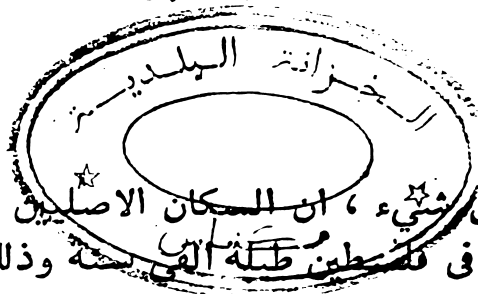 الخزانة البلدية
شيء ، ان السكان الاصليين
فى فلسطين طيلة الفي سنة وذلك